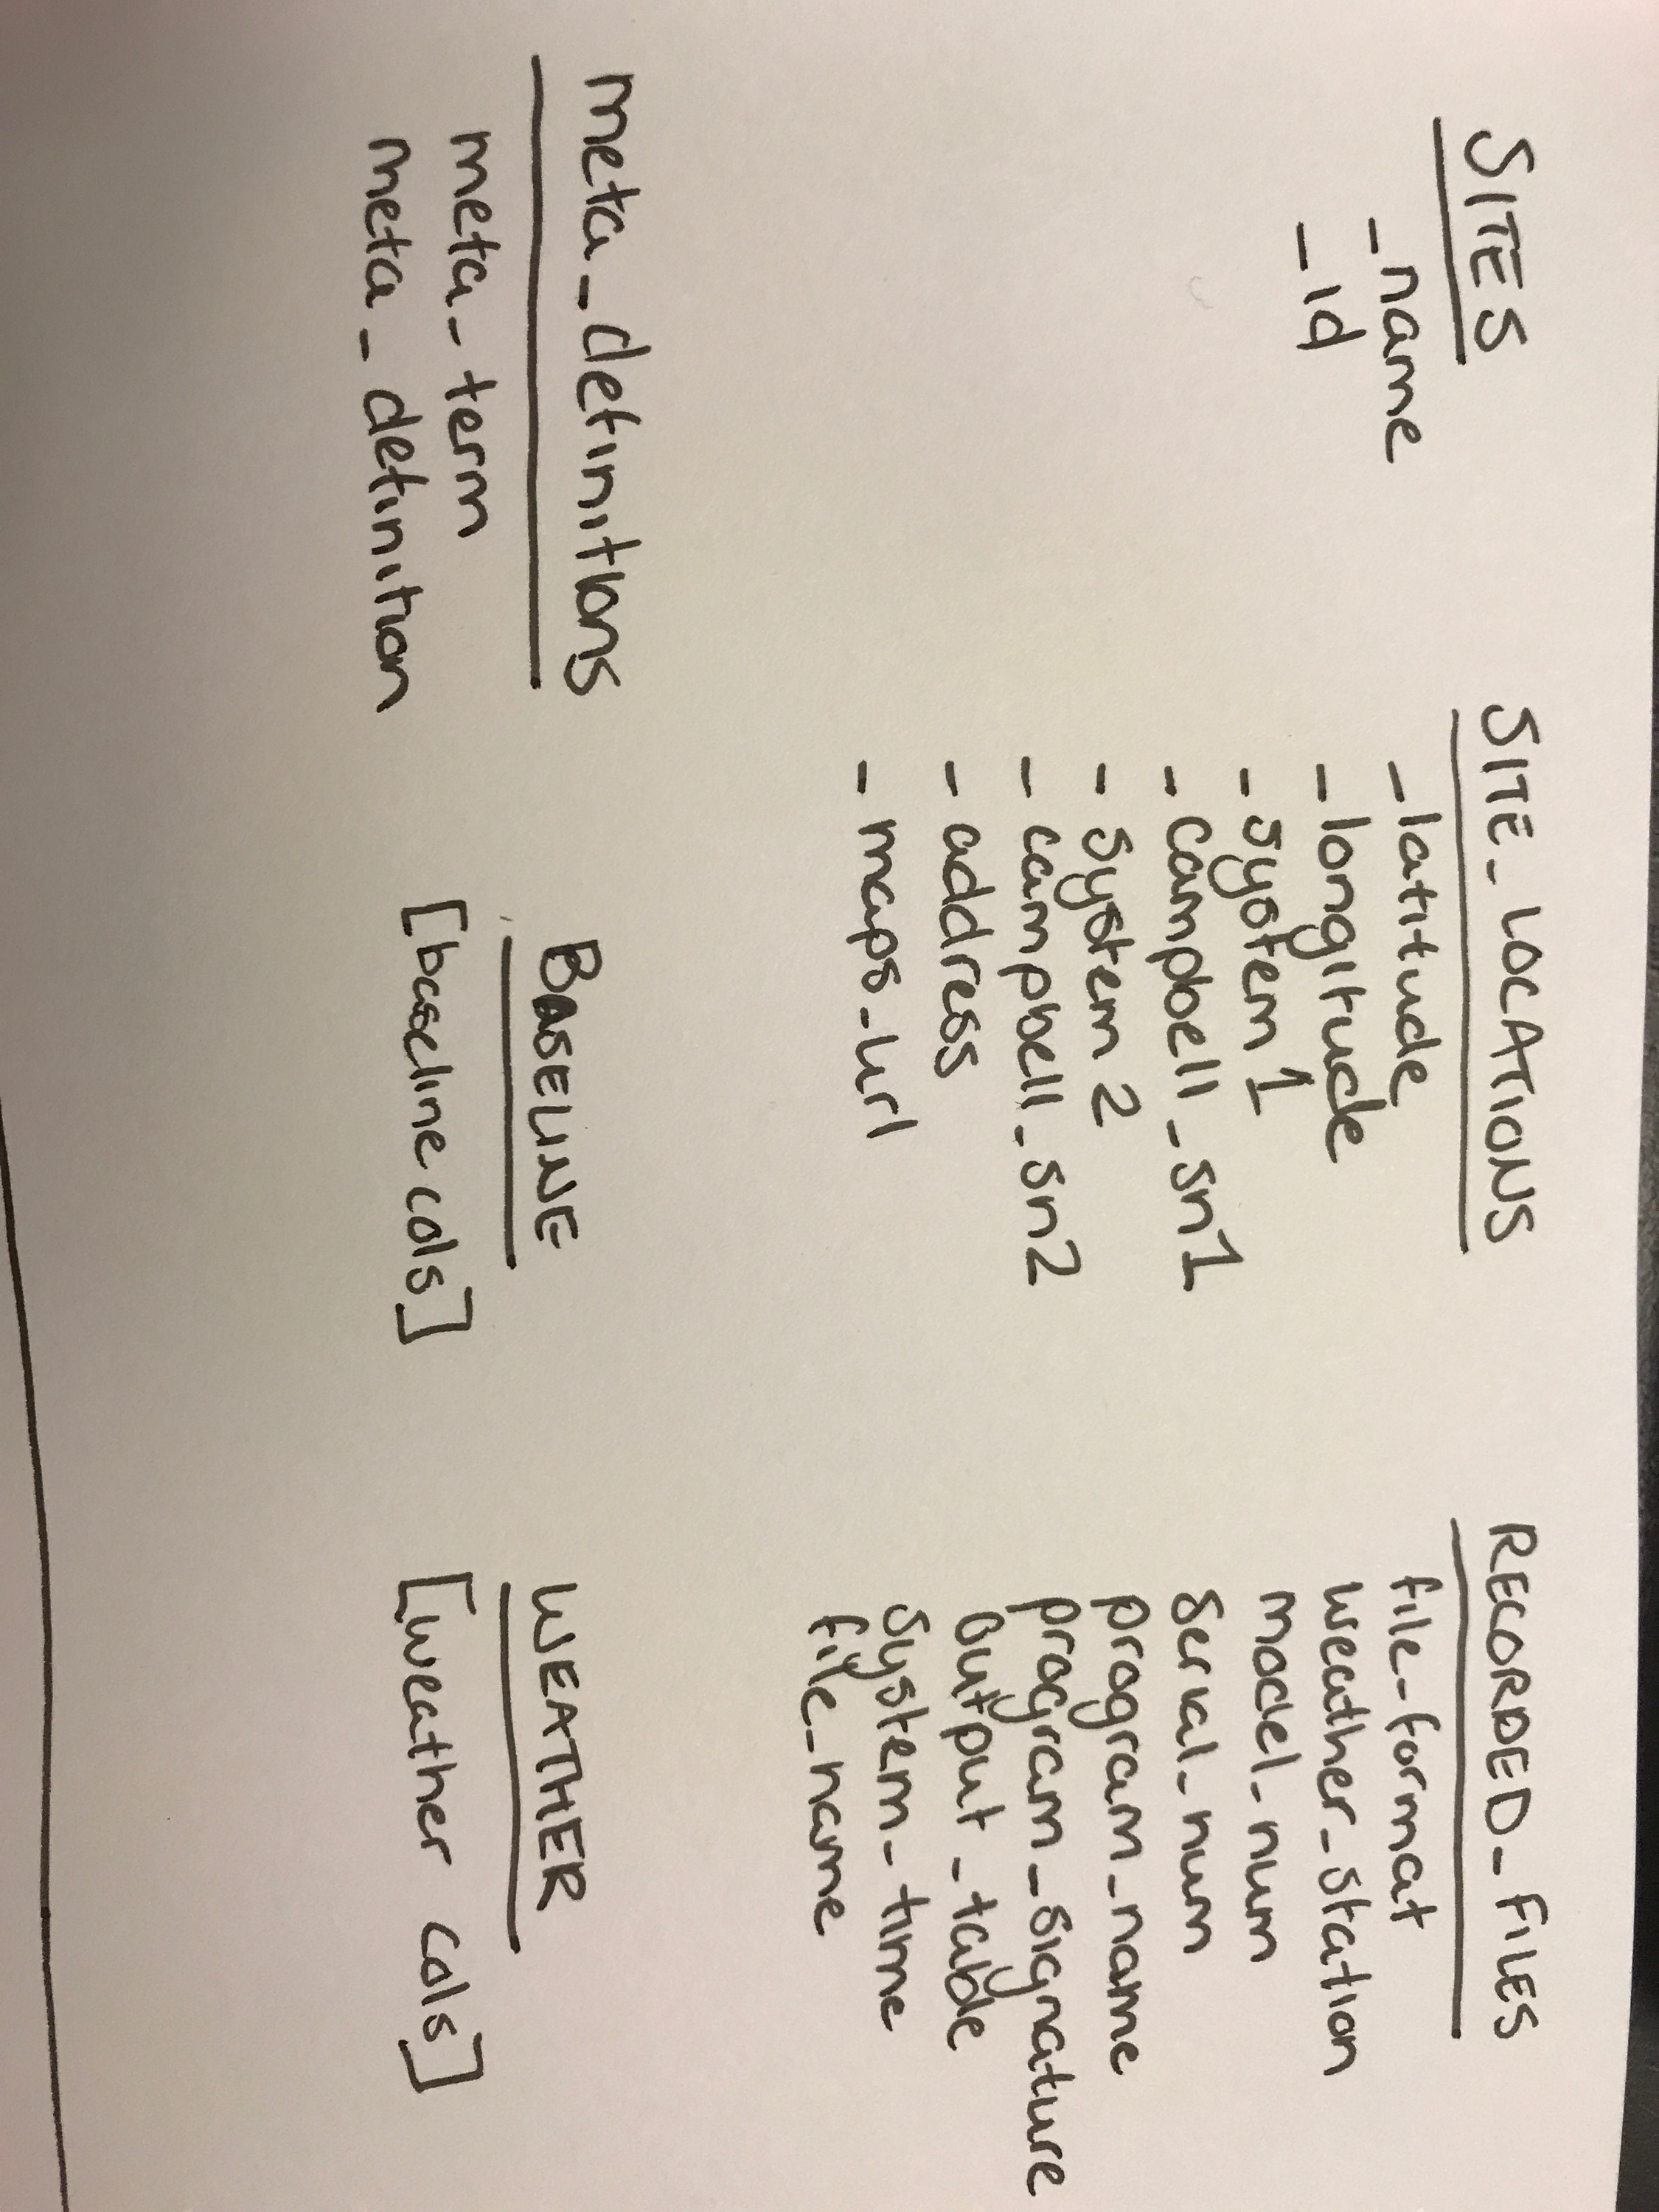 SITES
- name
- id
SITE_LOCATIONS
- latitude
- longitude
- system 1
- campbell_sn1
- system 2
- campbell_sn2
- address
- maps_url
RECORDED_FILES
file_format
weather_station
model_num
serial_num
program_name
program_signature
output_table
system_time
file_name
meta_definitions
meta_term
meta_definition
BASELINE
[baseline cols]
WEATHER
[weather cols]